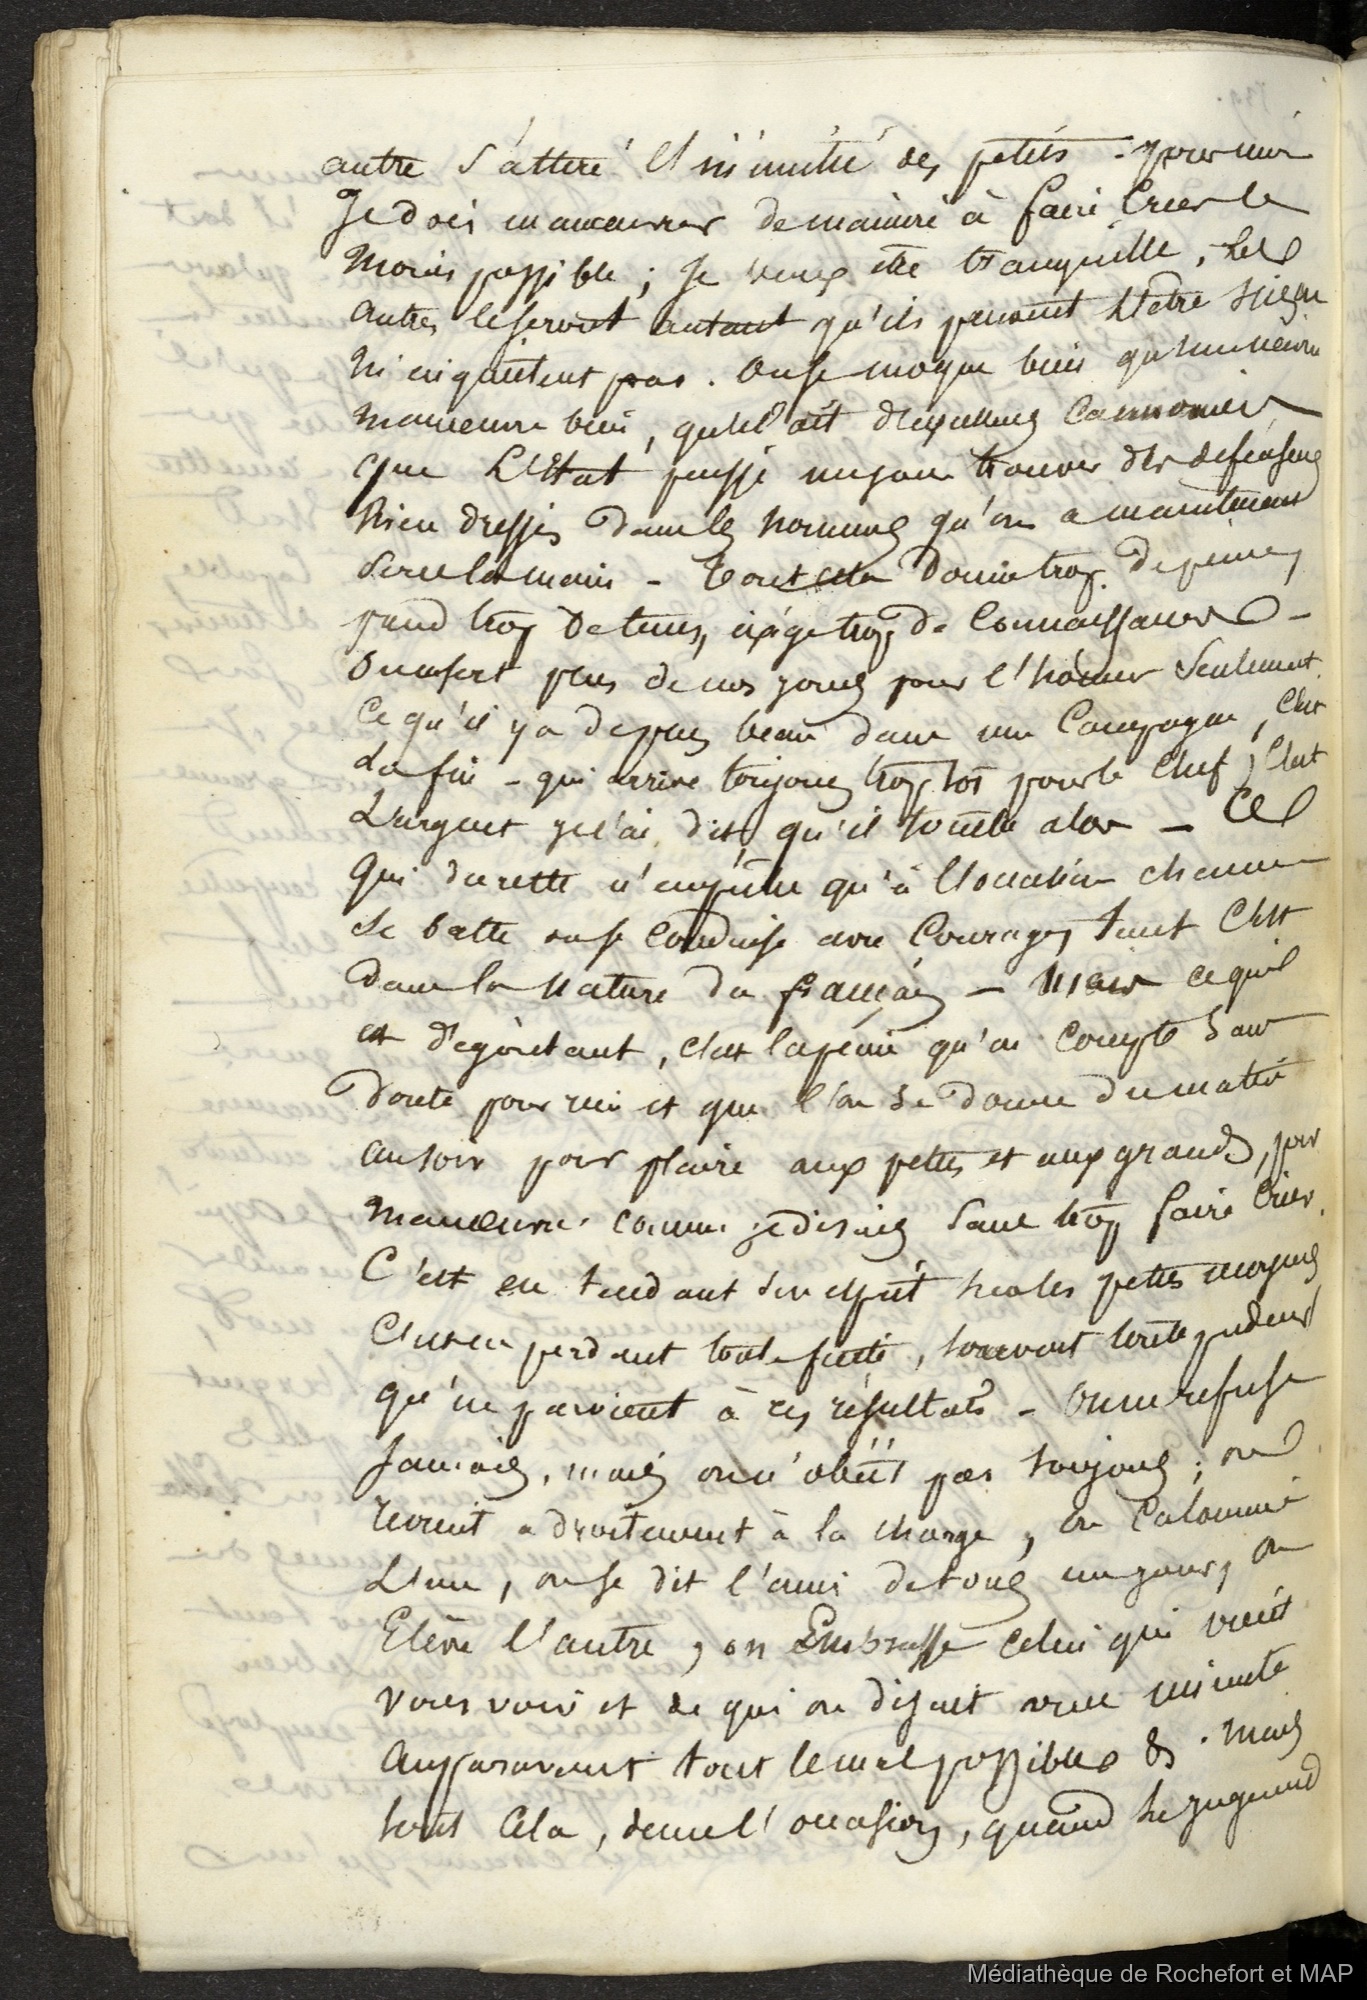 autre s'attire l'inimitié des petits - pour moi
Je dois manœuvrer de manière à faire crier le
moins possible ; Je veux être tranquille, les
autres le seront autant qu'ils peuvent l'être si le
n'inquiètent pas. On se moque bien qu'un navire
manœuvre bien, qu'il ait d'excellens canonniers
que l'Etat puisse un jour trouver des defenseurs
bien dressés dans les hommes qu'on a maintenant
sous la main - Tout cela donne trop de peine,
prend trop de tems, exige trop de connaissances -
On ne sert plus de nos jours pour l'honneur seulement.
Ce qu'il y a de plus beau dans une Campagne, c'est
la fin - qui arrive toujours trop tot pour le chef, c'est
L'argent je l'ai dit qu'il touche alors - Ce
qui du reste n'empêche qu'à l'occasion chacun
se batte ou se conduise avec courage, tant c'est
dans la nature du français - mais ce qui
est dégoûtant, c'est la peine qu'on compte sans
doute pour rien et que l'on se donne du matin
au soir pour plaire aux petits et aux grands, pour
manœuvrer comme je disais sans trop faire crier.
C'est en tendant son esprit vers les petits moyens
C'est en perdant toute fierté, souvent toute pudeur
qu'on parvient à ces résultats - On ne refuse
jamais, mais on n'obéit pas toujours ; on
revient adroitement à la charge, on calomnie
L'un, on se dit l'ami de tous un jour, on
Elève l'autre, on Embrasse celui qui vient
vous voir et de qui on disait une minute
auparavant tout le mal possible & . mais
tout cela, dans l'occasion, quand le jugement
Médiathèque de Rochefort et MAP